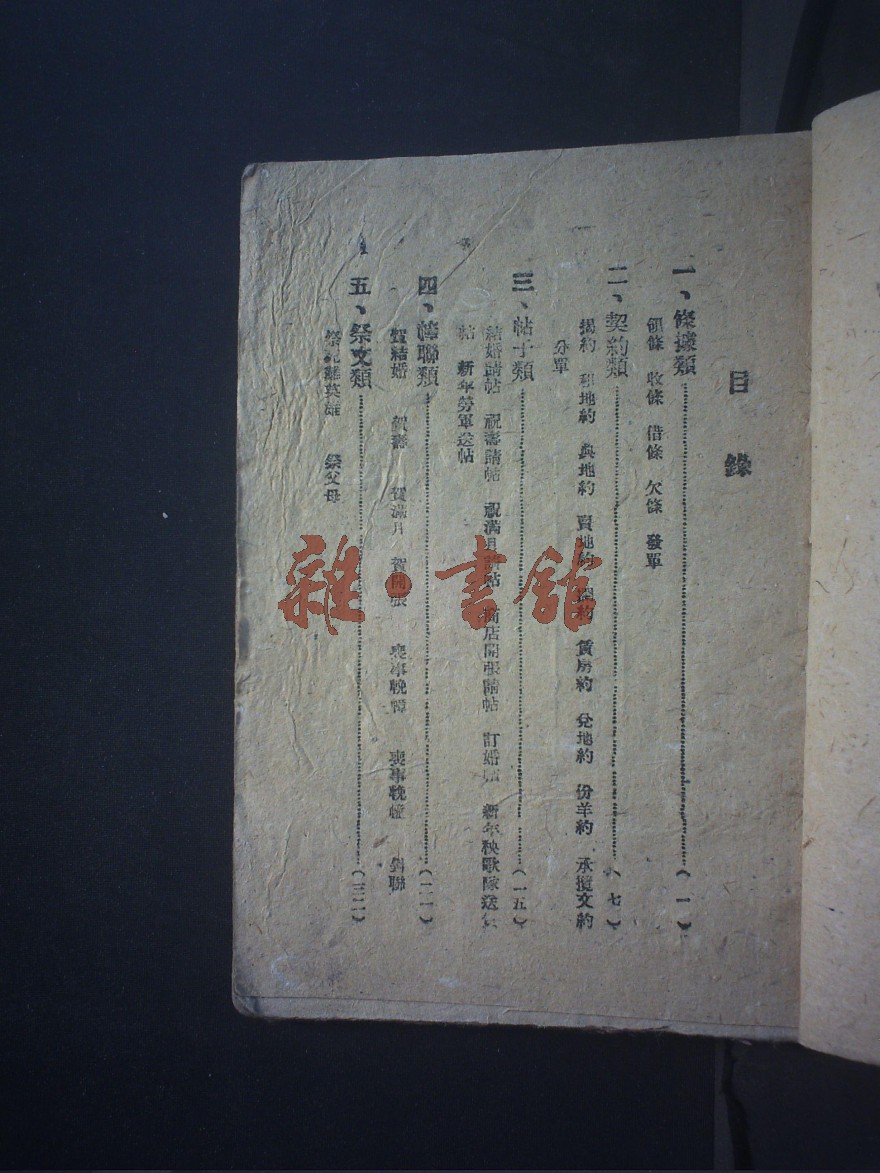 目　錄
一、條據類……(一)
領條　收條　借條　欠條　發單
二、契約類……(七)
揭約　租地約　典地約　賣地約　約　賃房約　兌地約　份羊約　承攬文約
分單
三、帖子類……(一五)
結婚請帖　祝壽請帖　祝滿月請帖　商店開張請帖　訂婚帖　新年秧歌隊送
帖　新年勞軍送帖
四、幛聯類……(二一)
賀結婚　賀壽　賀滿月　賀開張　喪事輓幛　喪事輓幢　對聯
五、祭文類……(三二)
祭死難英雄　祭父母
雜·書館